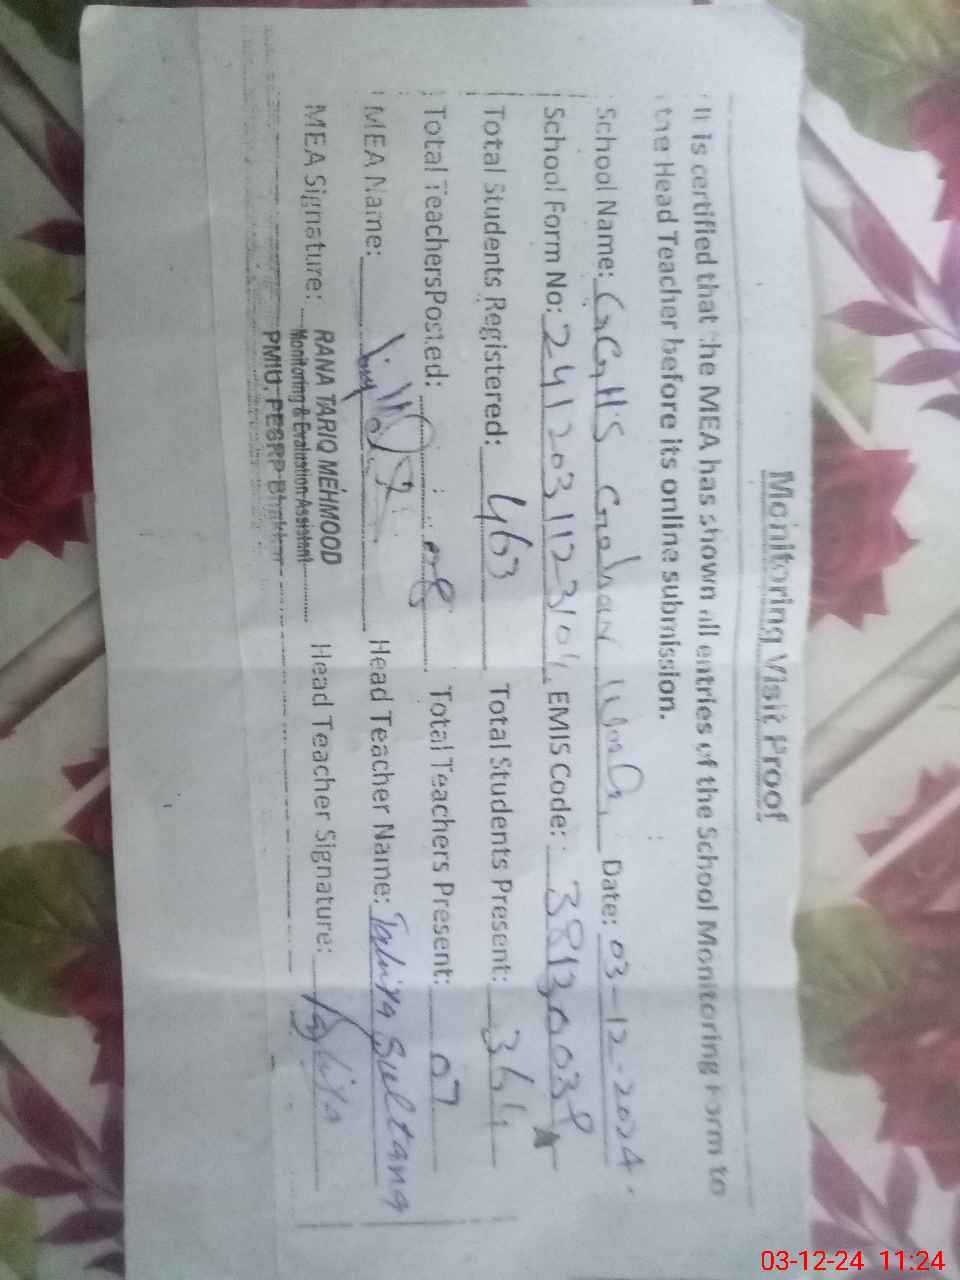 Monitoring Visit Proof
It is certified that the MEA has shown all entries of the School Monitoring Form to
the Head Teacher before its online submission.
School Name: GGHS Date: 03-12-2024.
School Form No: EMIS Code: 38130038
Total Students Registered: 463 Total Students Present:
Total Teachers Posted: 08 Total Teachers Present: 07
MEA Name: Head Teacher Name: Sultana
MEA Signature: Head Teacher Signature:
RANA TARIQ MEHMOOD
Monitoring & Evaluation Assistant
PMIU, PESRP Bhakkar
03-12-24 11:24